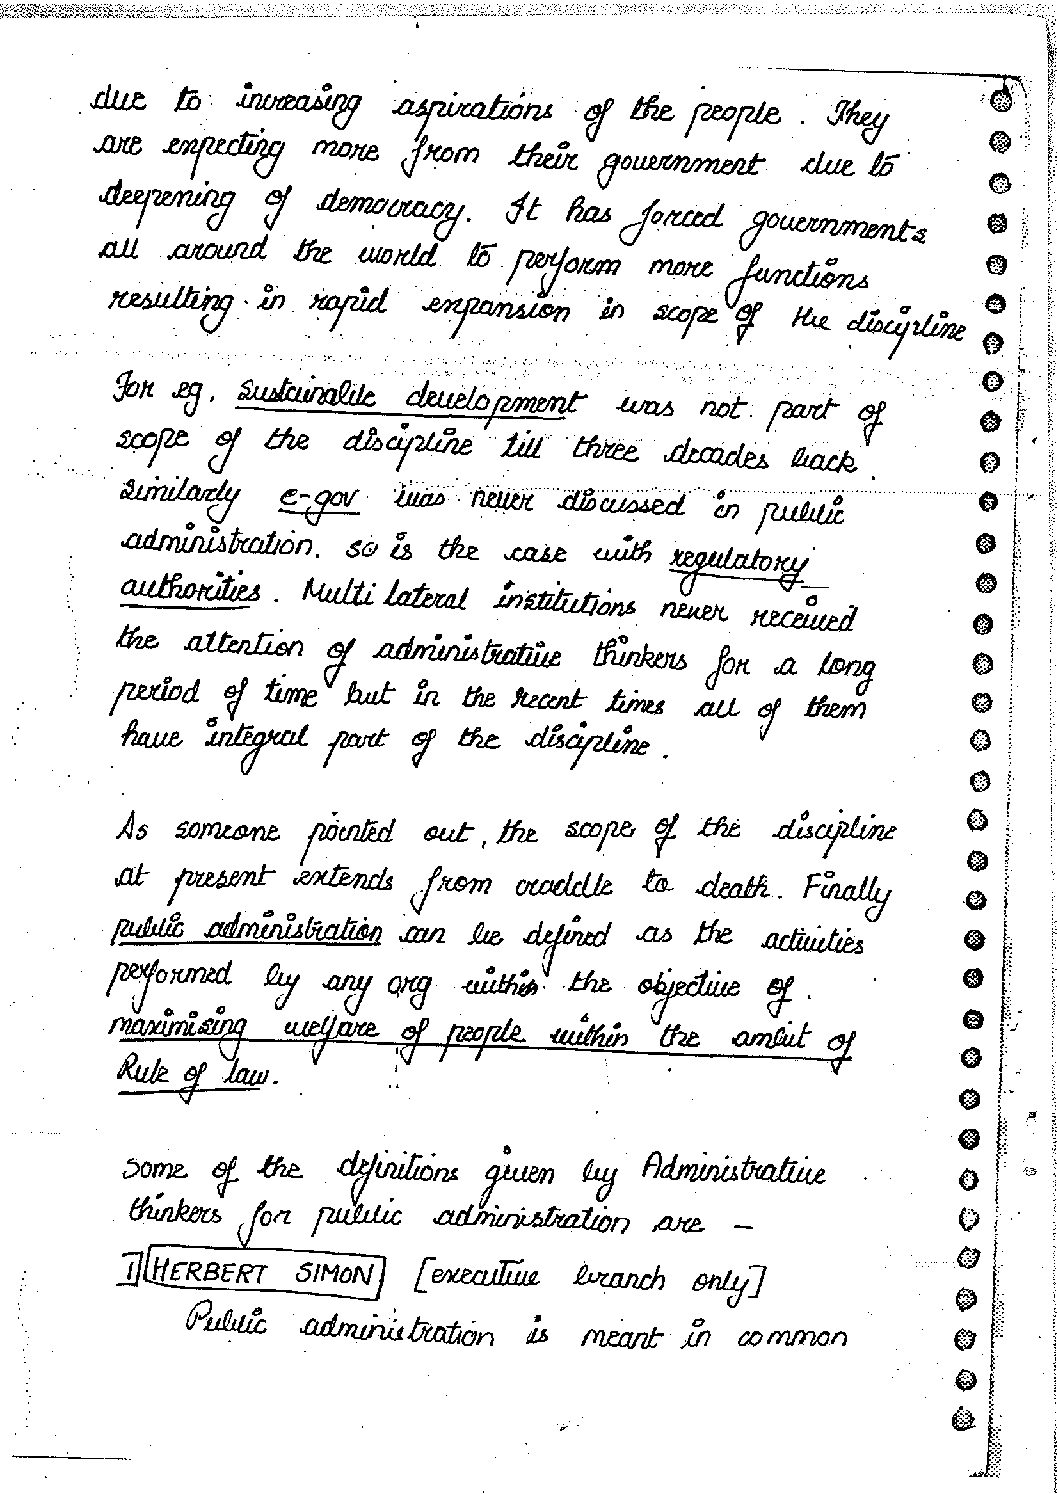 due to increasing aspirations of the people. They
are expecting more from their government due to
deepening of democracy. It has forced governments
all around the world to perform more functions
resulting in rapid expansion in scope of the discipline
For eg. sustainable development was not part of
scope of the discipline till three decades back.
Similarly e-gov was never discussed in public
administration. so is the case with regulatory
authorities. Multi lateral institutions never received
the attention of administrative thinkers for a long
period of time but in the recent times all of them
have integral part of the discipline.
As someone pointed out, the scope of the discipline
at present extends from craddle to death. Finally
public administration can be defined as the activities
performed by any org within the objective of
maximising welfare of people within the ambit of
Rule of law.
Some of the definitions given by Administrative
thinkers for public administration are –
1] HERBERT SIMON [executive branch only]
Public administration is meant in common